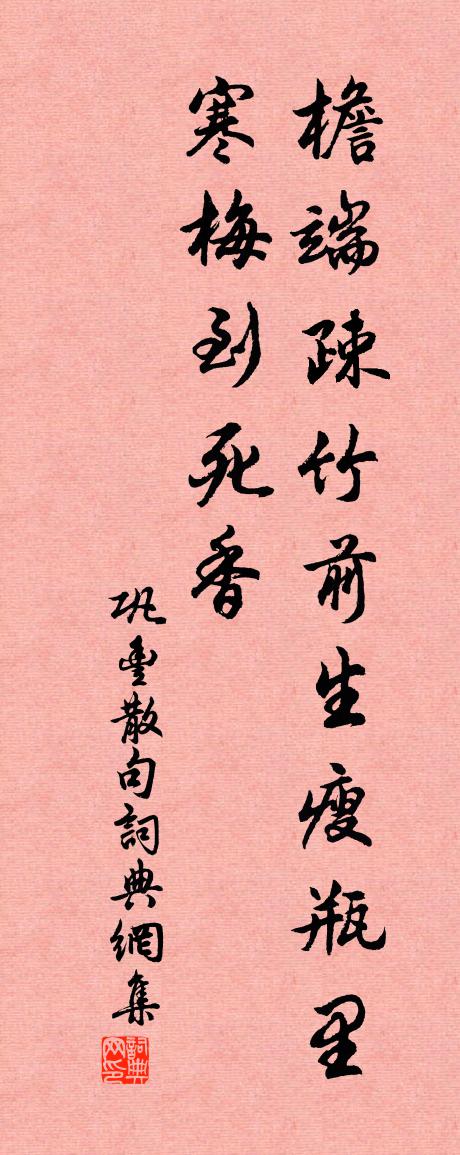 檐端疎竹前生瘦瓶里
寒梅到死香
巩豐散句詞典網集
詞典网印